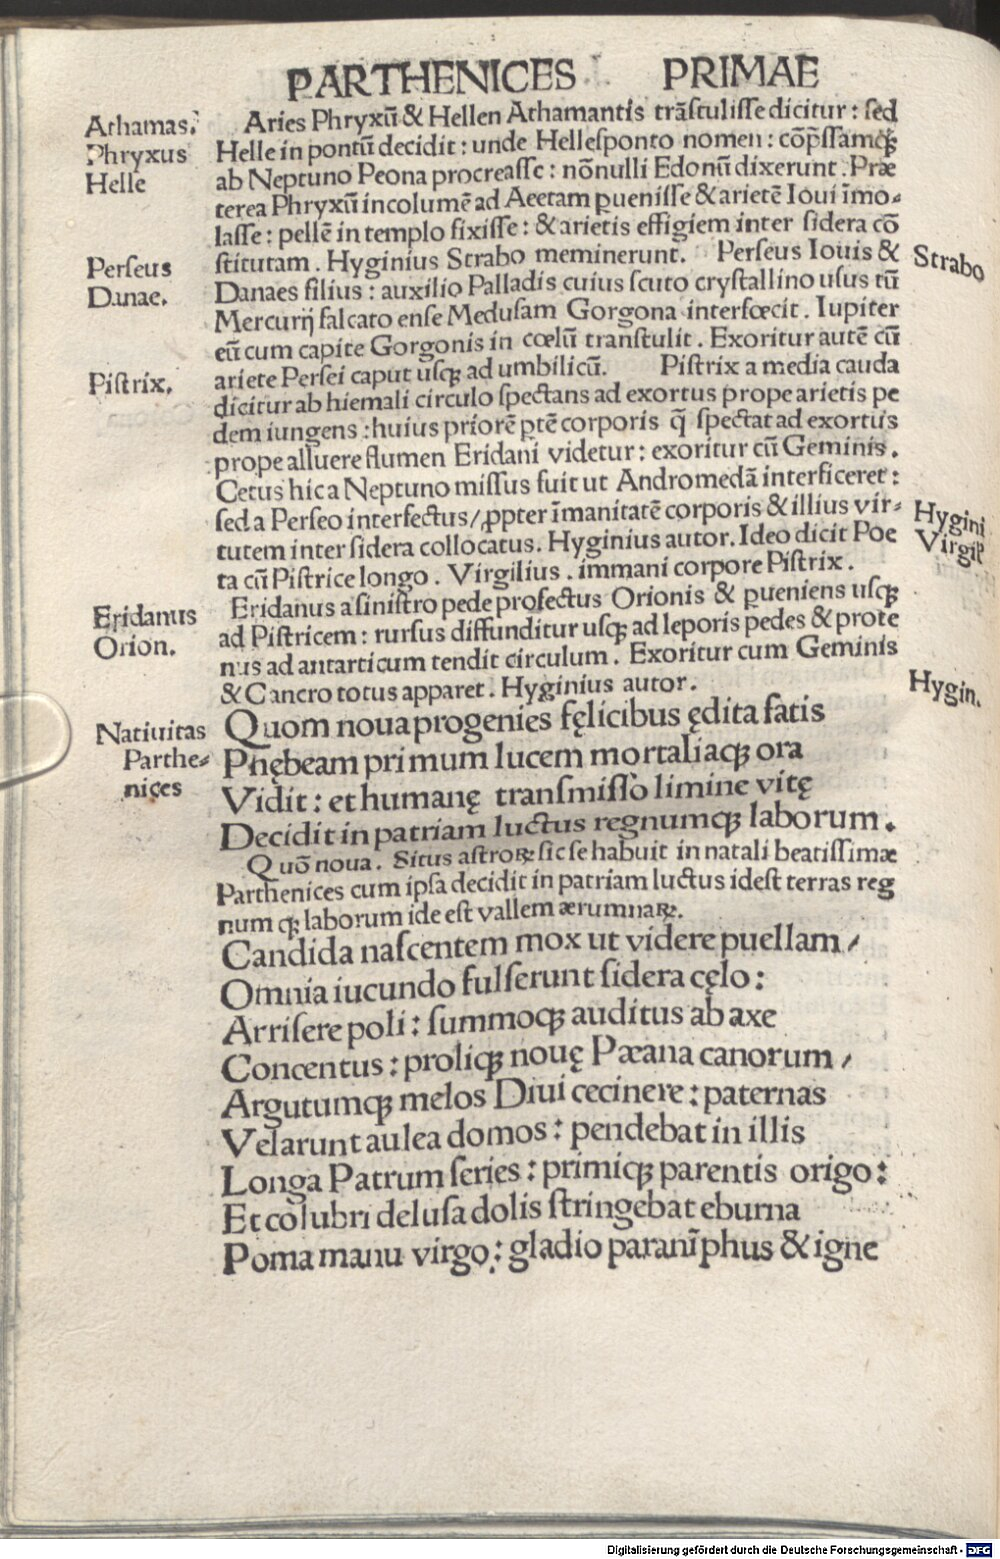 PARTHENICES PRIMAE
Athamas.
Phryxus
Helle
Aries Phryxū & Hellen Athamantis trāſtuliſſe dicitur : ſed
Helle in pontū decidit : unde Helleſponto nomen : cōp̄ſſamqꝫ
ab Neptuno Peona procreaſſe : nōnulli Edonū dixerunt . Præ
terea Phryxū incolumē ad Aeetam ꝑueniſſe & arietē Ioui īmo-
laſſe : pellē in templo fixiſſe : & arietis effigiem inter ſidera cō
ſtitutam . Hyginius Strabo meminerunt. Perſeus Iouis &
Strabo
Perſeus
Danae.
Danaes filius : auxilio Palladis cuius ſcuto cryſtallino uſus tū
Mercurij falcato enſe Meduſam Gorgona interfœcit . Iupiter
eū cum capite Gorgonis in cœlū tranſtulit . Exoritur autē cū
ariete Perſei caput uſqꝫ ad umbilicū. Piſtrix a media cauda
Piſtrix.
dicitur ab hiemali circulo ſpectans ad exortus prope arietis pe
dem iungens : huius priorē ꝑtē corporis q̄ ſpectat ad exortus
prope alluere flumen Eridani videtur : exoritur cū Geminis .
Cetus hic a Neptuno miſſus fuit ut Andromedā interficeret :
ſed a Perſeo interfectus / ꝓpter īmanitatē corporis & illius vir-
tutem inter ſidera collocatus. Hyginius autor. Ideo dicit Poe
ta cū Piſtrice longo . Virgilius . immani corpore Piſtrix .
Hygini
Virgil
Eridanus
Orion.
Eridanus a ſiniſtro pede profectus Orionis & ꝑueniens uſqꝫ
ad Piſtricem : rurſus diffunditur uſqꝫ ad leporis pedes & prote
nus ad antarticum tendit circulum . Exoritur cum Geminis
& Cancro totus apparet . Hyginius autor.
Hygin.
Natiuitas
Parthe-
nices
Quom noua progenies fęlicibus ędita fatis
Phębeam primum lucem mortaliaqꝫ ora
Vidit : et humanę tranſmiſſo limine vitę
Decidit in patriam luctus regnumqꝫ laborum .
Quō noua . Situs aſtroꝝ ſic ſe habuit in natali beatiſſimæ
Parthenices cum ipſa decidit in patriam luctus ideſt terras reg
num qꝫ laborum ide eſt vallem ærumnaꝝ.
Candida naſcentem mox ut videre puellam /
Omnia iucundo fulſerunt ſidera cęlo :
Arriſere poli : ſummoqꝫ auditus ab axe
Concentus : proliqꝫ nouę Pæana canorum /
Argutumqꝫ melos Diui cecinere : paternas
Velarunt aulea domos : pendebat in illis
Longa Patrum ſeries : primiqꝫ parentis origo :
Et colubri deluſa dolis ſtringebat eburna
Poma manu virgo : gladio paranīphus & igne
Digitalisierung gefördert durch die Deutsche Forschungsgemeinschaft - DFG